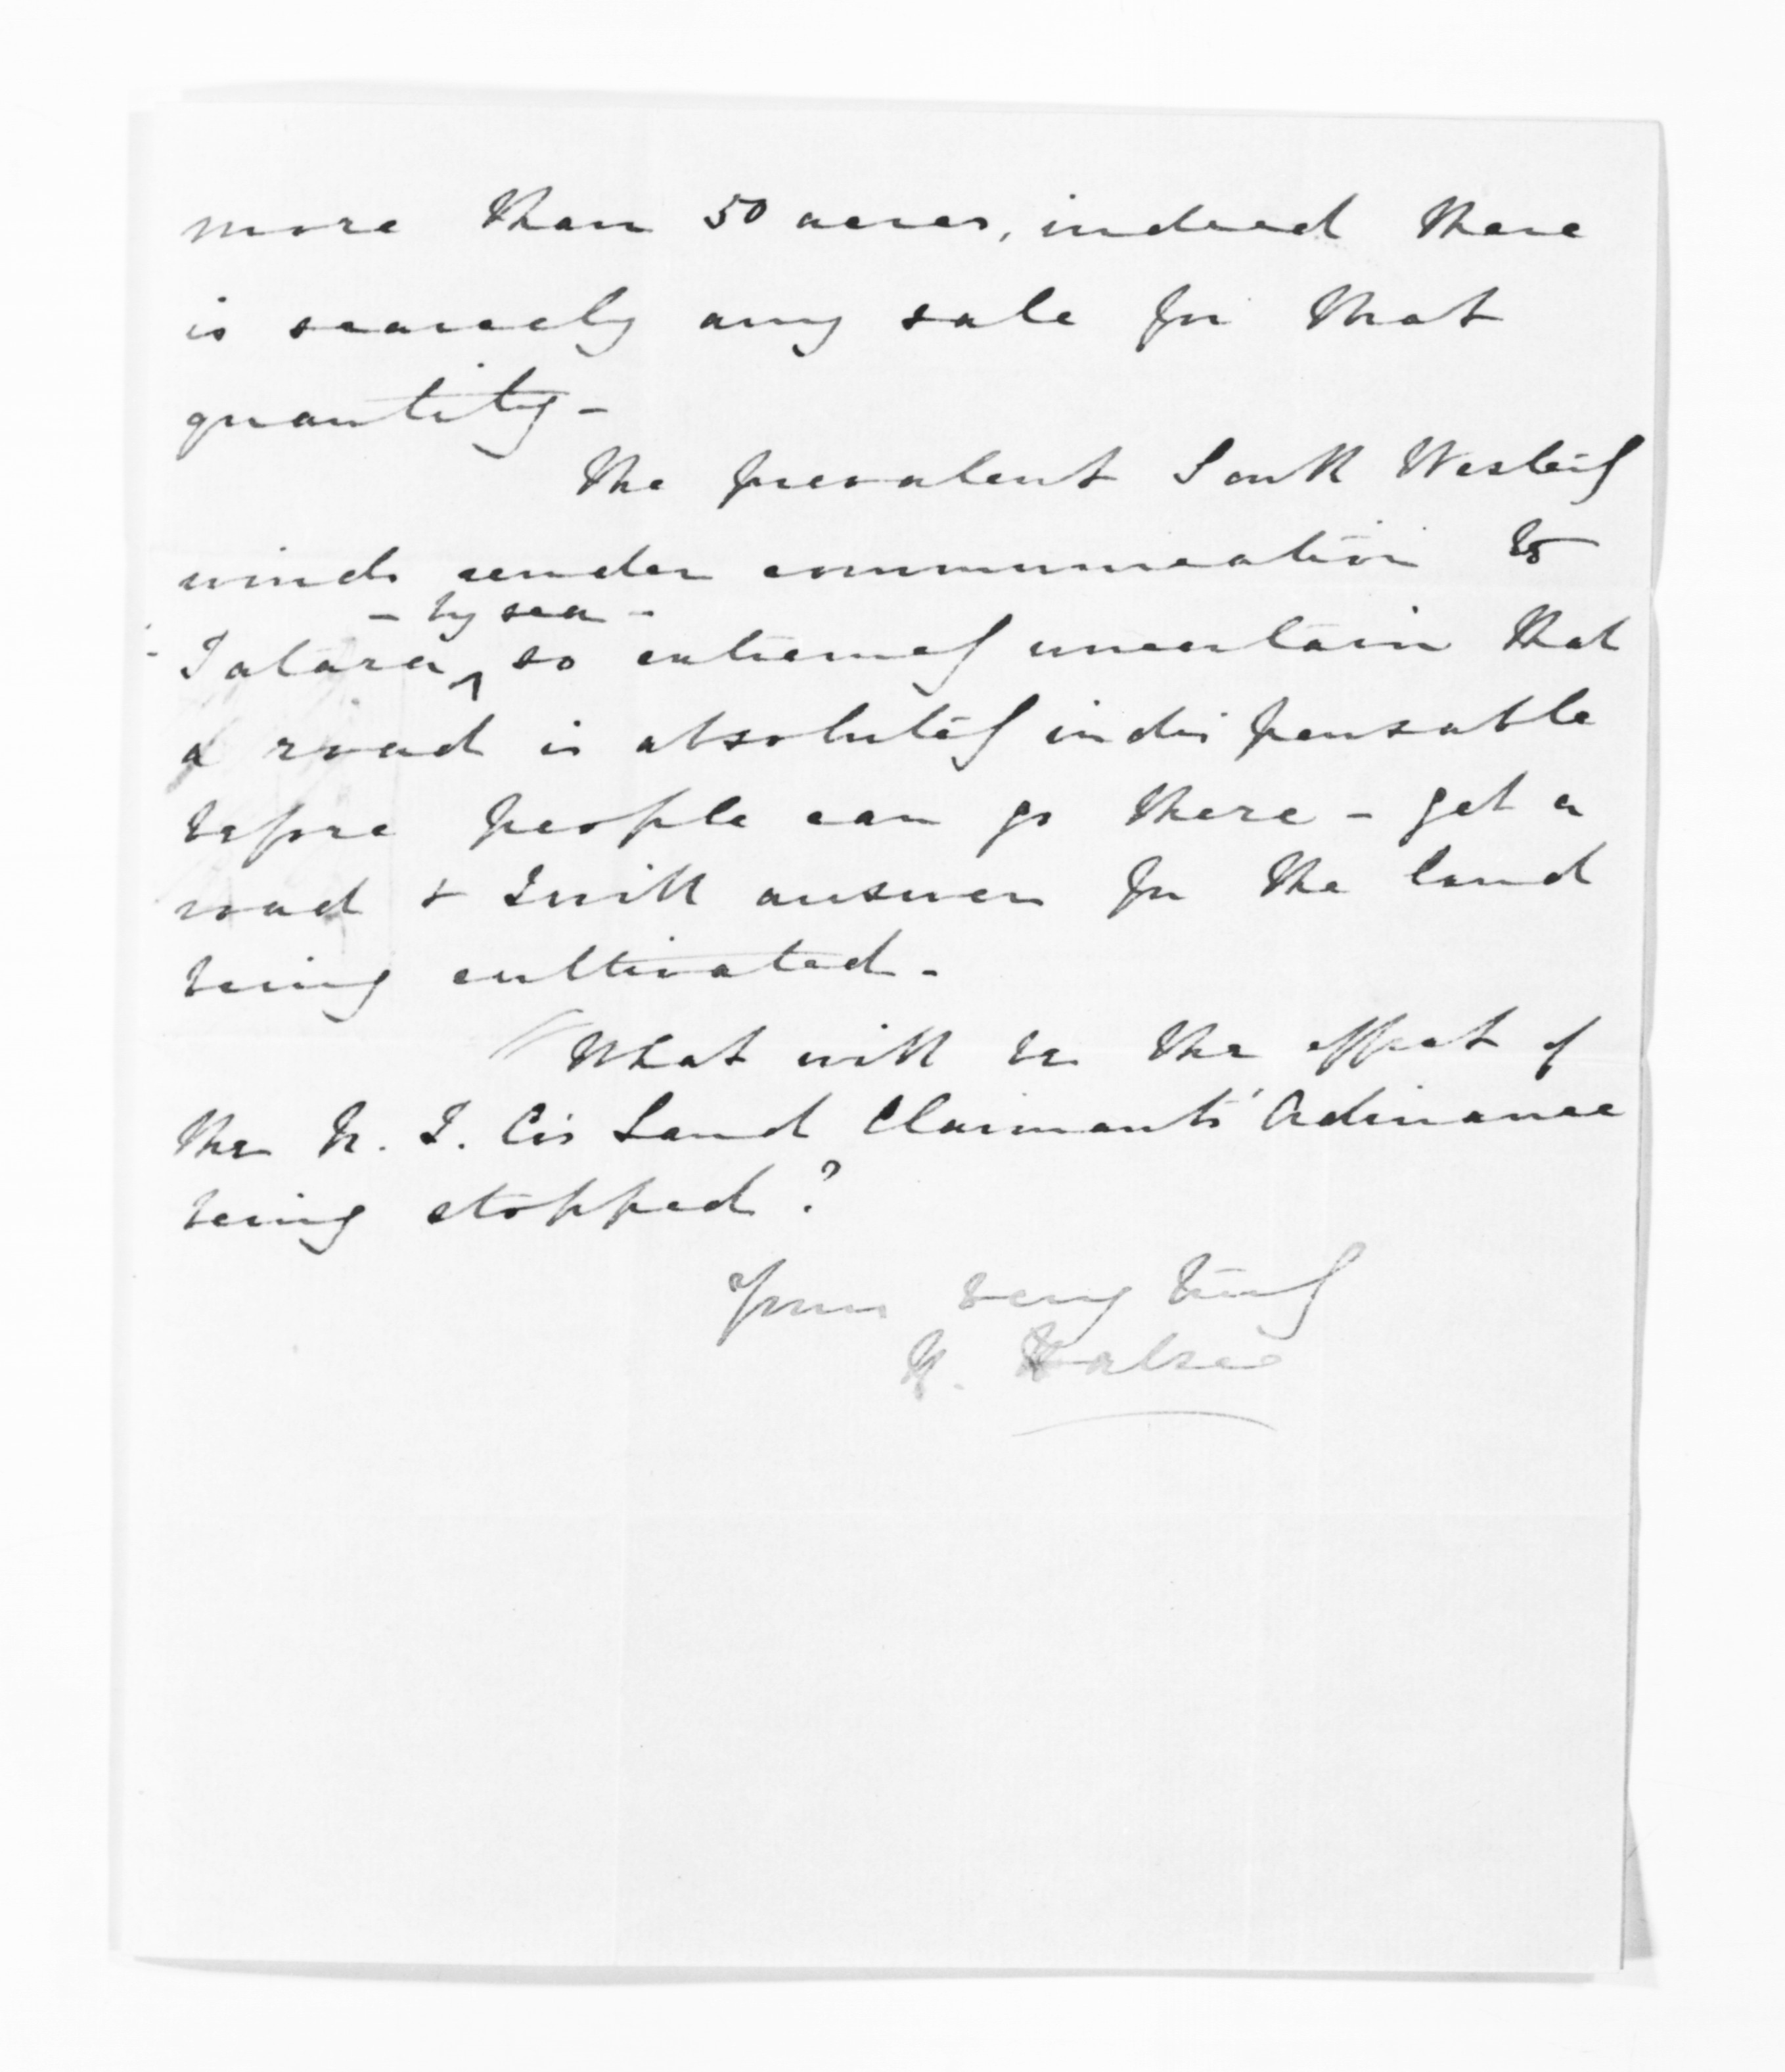 more than 50 acres, indeed there
is scarcely any sale for that
quantity -
The prevalent South Westerly
winds render communication to
- by sea -
Tatara ^ so extremely uncertain that
a road is absolutely indispensable
before people can go there - get a
road & I will answer for the land
being cultivated -
What will be the effect of
the N. Z. Co's Land Claimants' Ordinance
being stopped?
Yours very truly
H. Halse